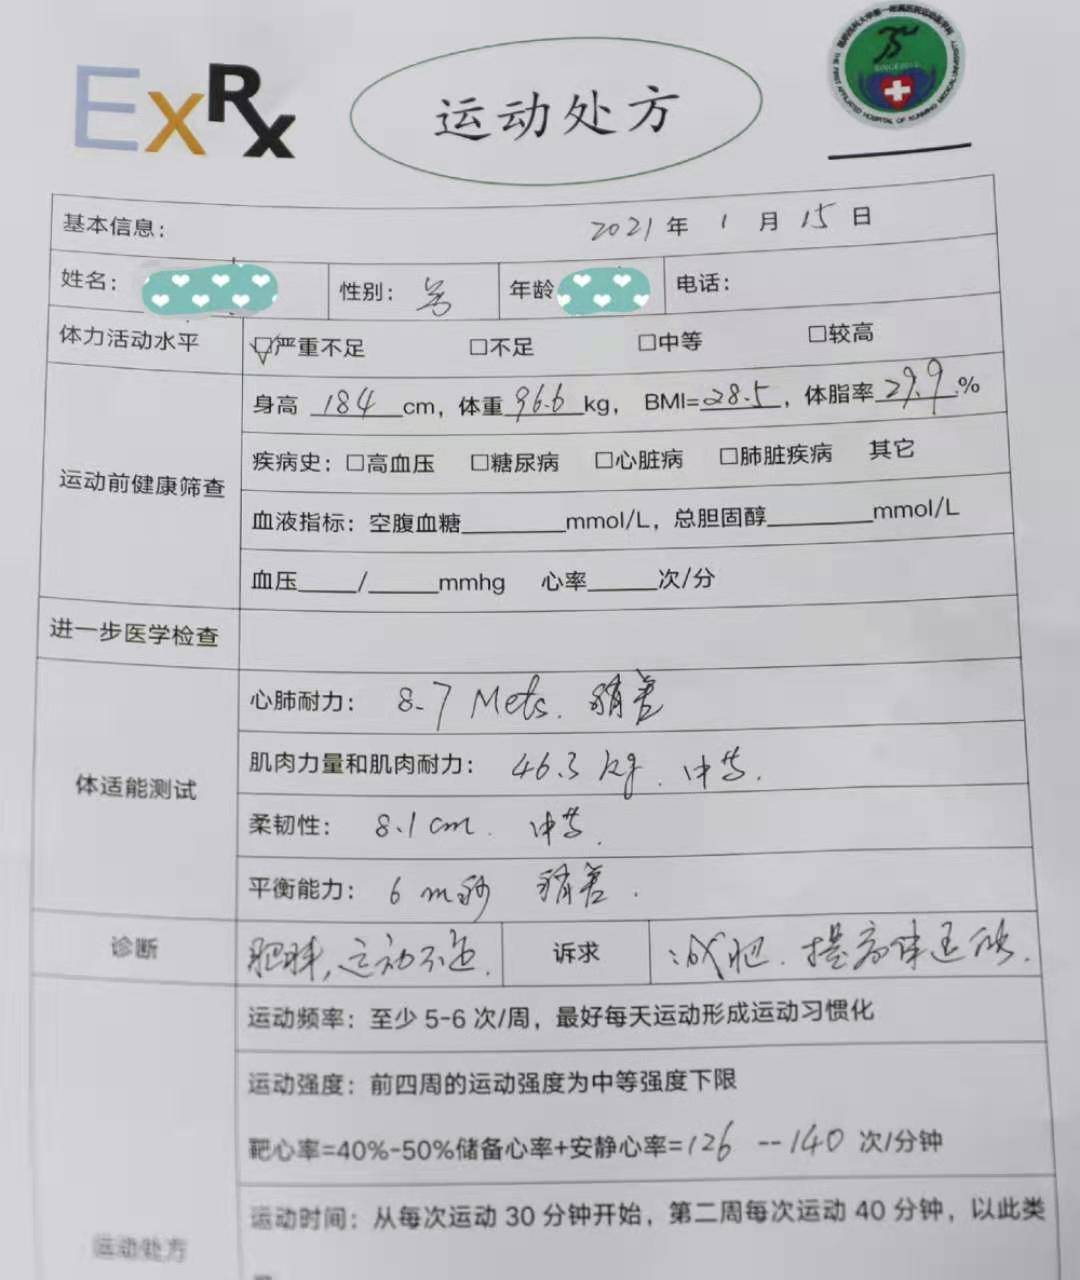 ExRx
运动处方
SINCE2013
THE FIRST AFFILIATED HOSPITAL OF KUNMING MEDICAL UNIVERSITY
基本信息： 2021年 1月15日
姓名： 性别：男 年龄 电话：
体力活动水平 ☑严重不足 □不足 □中等 □较高
身高 184 cm，体重 96.6 kg， BMI=28.5，体脂率 29.9 %
运动前健康筛查
疾病史：□高血压 □糖尿病 □心脏病 □肺脏疾病 其它
血液指标：空腹血糖______mmol/L，总胆固醇______mmol/L
血压____/____mmhg 心率____次/分
进一步医学检查
心肺耐力： 8.7 Mets. 稍差
肌肉力量和肌肉耐力： 46.3 kg. 中等.
体适能测试
柔韧性： 8.1 cm. 中等.
平衡能力： 6 m秒 稍差.
诊断 肥胖，运动不足. 诉求 减肥. 提高体适能.
运动频率：至少 5-6 次/周，最好每天运动形成运动习惯化
运动强度：前四周的运动强度为中等强度下限
靶心率=40%-50%储备心率+安静心率=126 --140 次/分钟
运动时间：从每次运动 30 分钟开始，第二周每次运动 40 分钟，以此类
运动处方